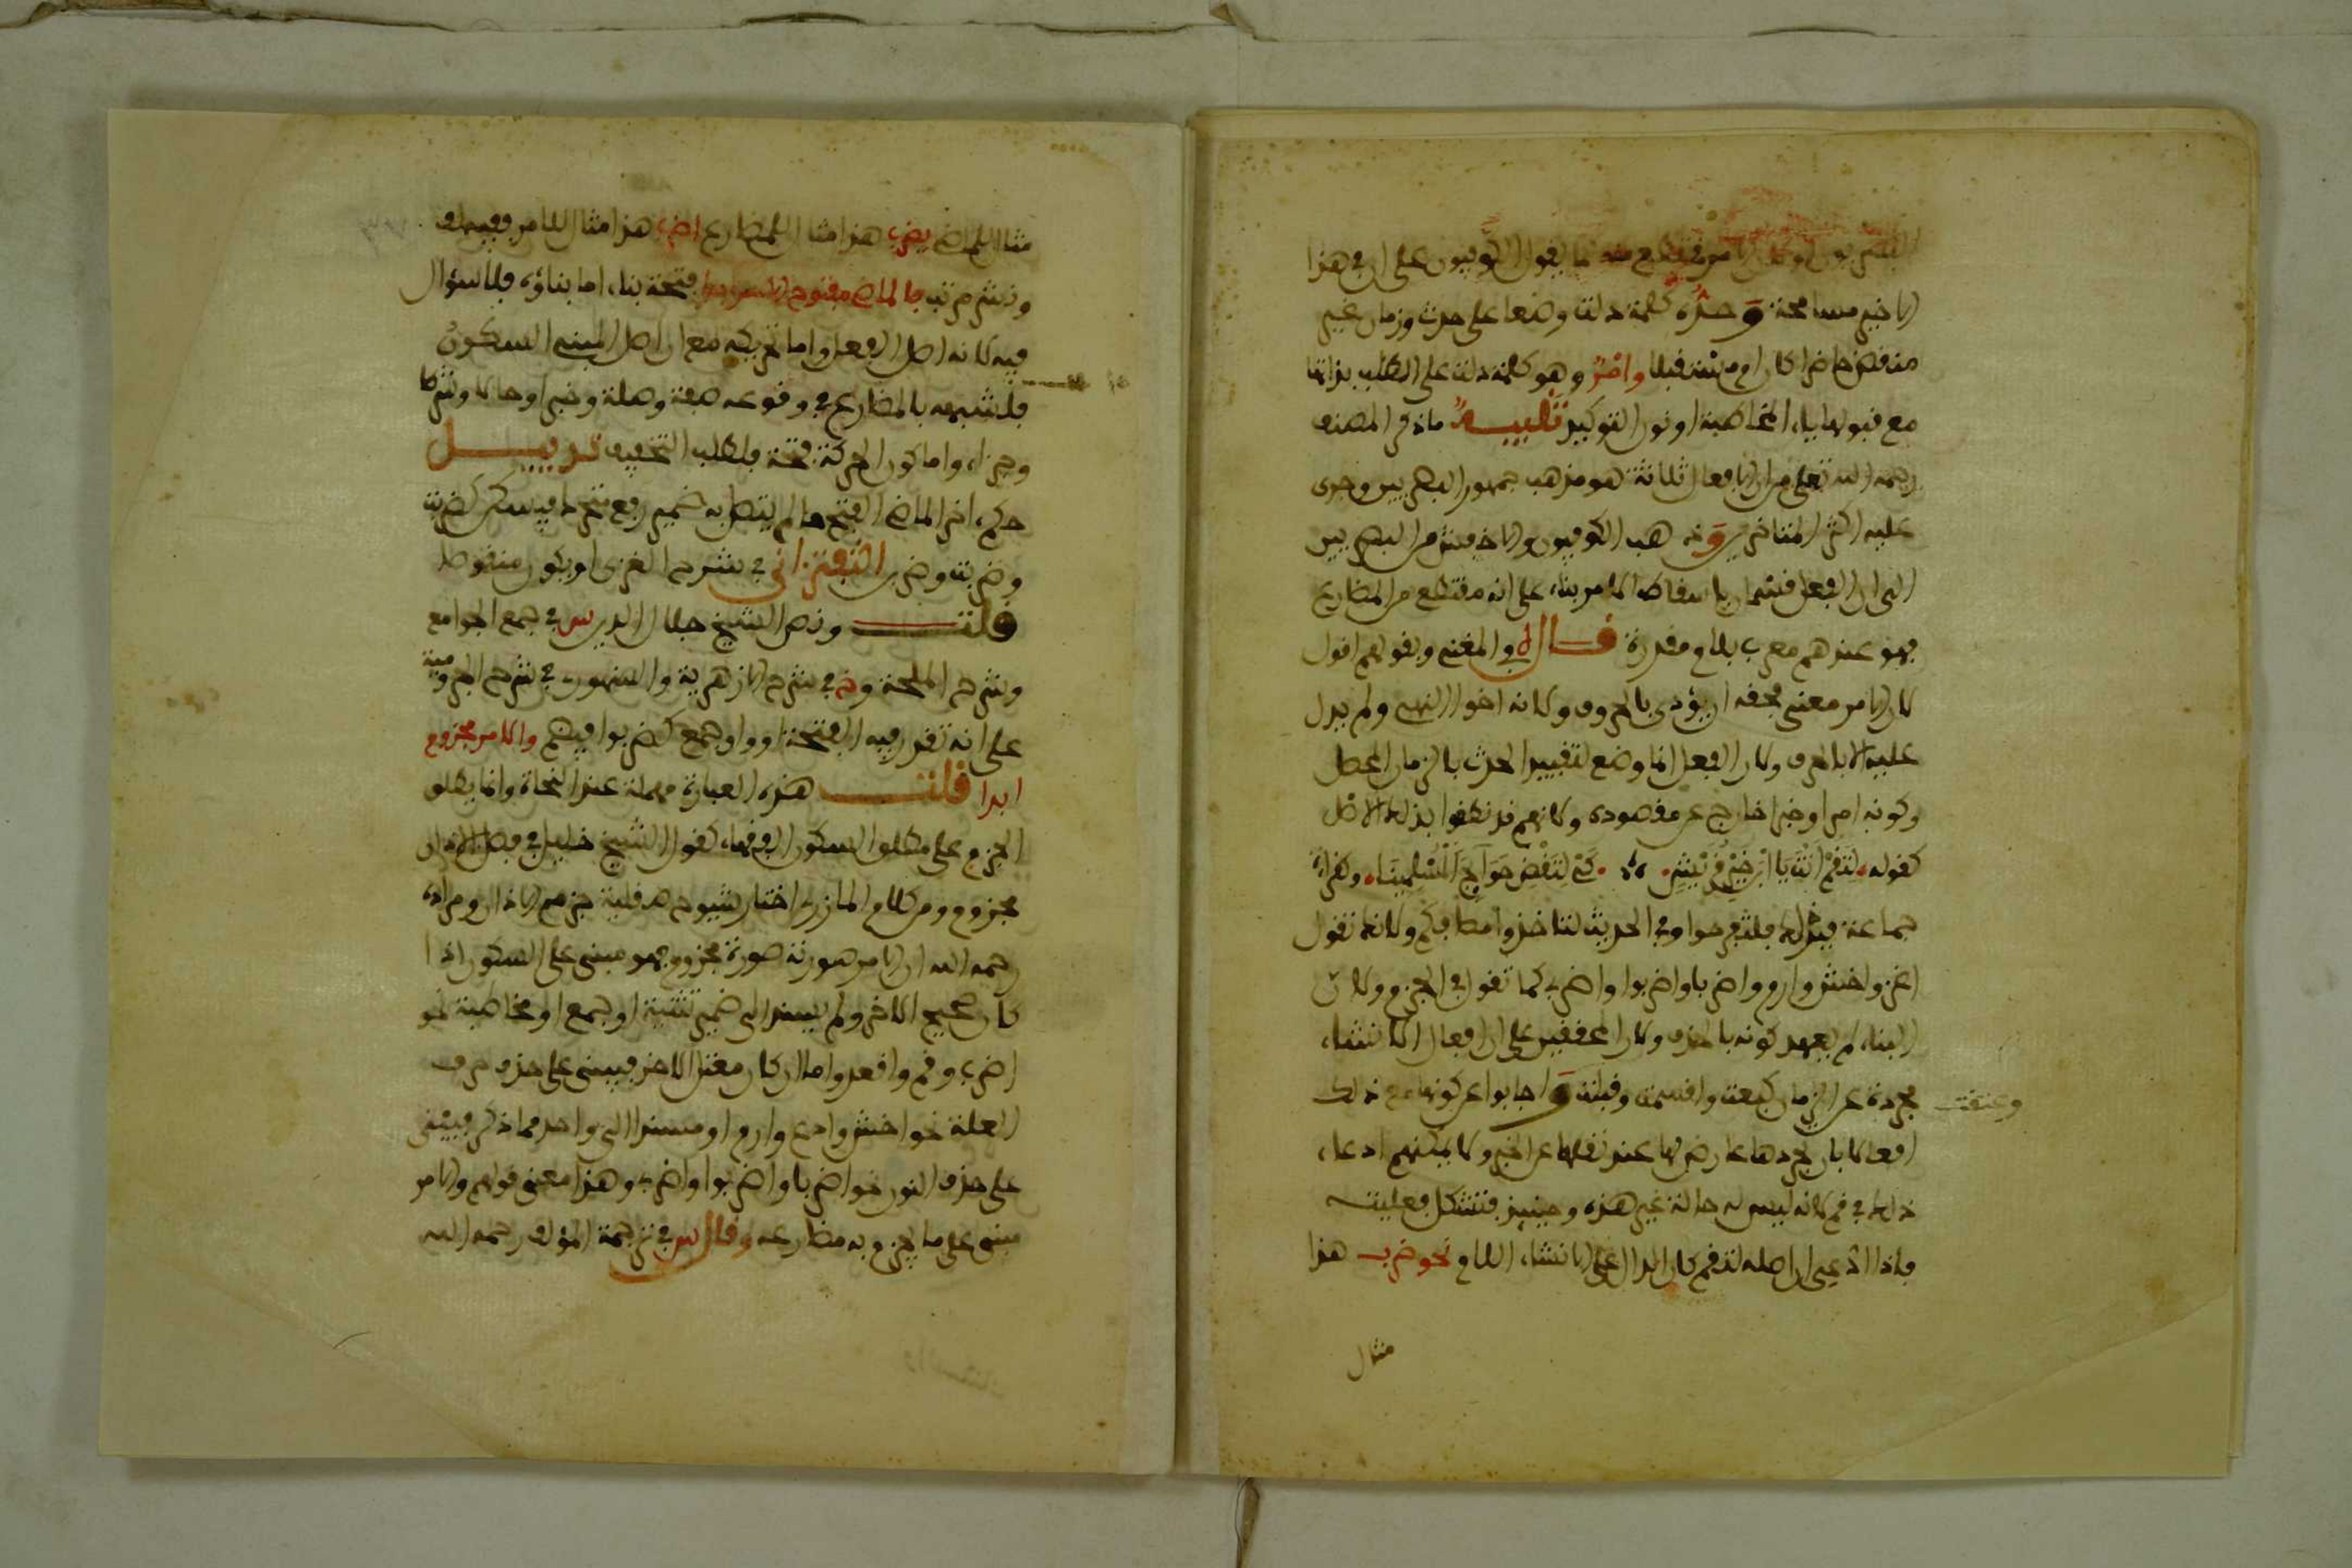 البصريون او كان الامر مقتطع منه كما يقول الكوفيون على ان في هذا
الاخير مسامحة وحده كلمة دلت وضعا على حدث وزمان غير
منقض حاضرا كان او مستقبلا وامر وهو كلمة دلت على الطلب بذاتها
مع قبولها ياء المخاطبة او نون التوكيد تنبيه ما ذكر المصنف
رحمه الله تعلى من ان الافعال ثلاثة هو مذهب جمهور البصريين وجرى
عليه اكثر المتاخرين وذهب الكوفيون والاخفش من البصريين
الى ان الفعل قسمان باسقاط الامر بناء على انه مقتطع من المضارع
فهو عندهم معرب بلام مقدرة قال في المغني وبقولهم اقول
لان الامر معنى فحقه ان يؤدى بالحروف ولانه اخو النهي ولم يدل
عليه الا بالحرف ولان الفعل انما وضع لتقييد الحدث بالزمان المحصل
وكونه امرا وخبرا خارج عن مقصوده ولانهم قد نطقوا بذلك الاصل
كقوله لتقم انت يا ابن خير قريش كي لتقض حوايج المسلمينا وكقراءة
جماعة فبذلك فلتفرحوا وفي الحديث لتاخذوا مصافكم ولانك تقول
اغز واخش وارم واضربا واضربوا واضربي كما تقول في الجزم ولان
البناء لم يعهد كونه بالحذف ولان المحققين على ان افعال الانشاء
مجردة عن الزمان كبعت واقسمت وقبلت واجابوا عن كونها مع ذلك
وعتقت
افعالا بان تجردها عارض لها عند نقلها عن الخبر ولا يمكنهم ادعاء
ذلك في قم لانه ليس له حالة غير هذه وحينئذ فتشكل فعليته
فاذا ادعي ان اصله لتقم كان الدال على الانشاء اللام نحو ضرب هذا
مثال
مثال الماضي يضرب هذا مثال المضارع اضرب هذا مثال للامر وفيه لف
ونشر مرتب فالماضي مفتوح الاخر ابدا فتحة بناء اما بناؤه فلا سؤال
فيه لانه اصل الافعال واما تحريكه مع ان اصل المبني السكون
فلشبهه بالمضارع في وقوعه صفة وصلة وخبرا وحالا وشرطا
وجزاء واما كون الحركة فتحة فلطلب التخفيف تذييل
حكم اخر الماضي الفتح ما لم يتصل به ضمير رفع متحرك فيسكن كضربت
وضربت وضربن التفتزاني في شرح الغزي او يكون منقوطا
قلت ونص الشيخ جلال الدين س في جمع الجوامع
وشرح الملحة وخ في شرح الازهرية والسنهوري في شرح الجرومية
على انه تقدر فيه الفتحة او واو جمع كضربوا فيضم والامر مجزوم
ابدا قلت هذه العبارة مهملة عند النحاة وانما يطلق
الجزم على مطلق السكون الفقهاء كقول الشيخ خليل في فصل الاذان
مجزوم ومن كلام المازري اختار شيوخ صقلية جزم الاذان ومراده
رحمه الله ان الامر صورته صورة مجزوم وهو مبني على السكون اذا
كان صحيح الاخر ولم يسند الى ضمير تثنية او جمع او مخاطبة نحو
اضرب وقم واقعد واما ان كان معتل الاخر فيبنى على حذف حرف
العلة نحو اخش وادع وارم او مسندا الى واحد مما ذكر فيبنى
على حذف النون نحو اضربا واضربوا واضربي وهذا معنى قولهم والامر
مبني على ما يجزم به مضارعه وقال س في ترجمة المؤلف رحمه الله